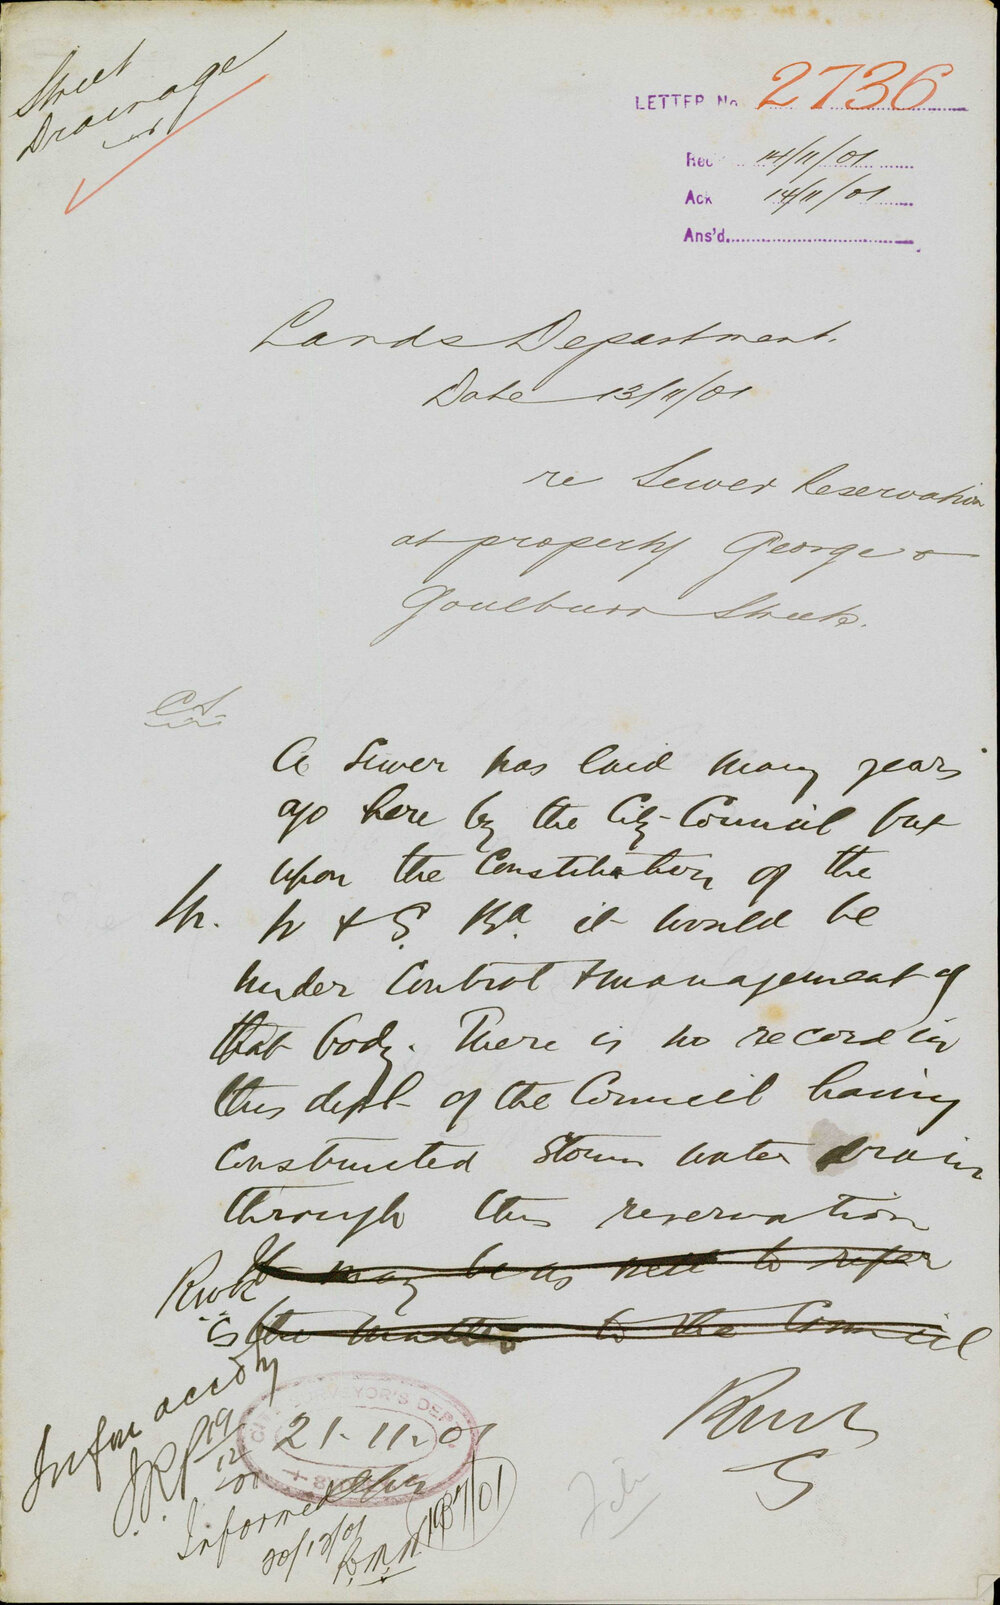 Street
Drainage
LETTER No 2736
Rec 14/11/01
Ack 14/11/01
Ans'd.
Lands Department.
Date 13/11/01
re Sewer Reservation
at property George &
Goulburn Streets.
CS
A Sewer was laid many years
ago here by the City Council but
upon the Constitution of the
M. W & S. Bd. it would be
under control & management of
that body. There is no record in
this dept of the Council having
constructed Storm water drain
through this reservation
It may be as well to refer
the matter to the Council
RWR
CS
Inform accdly
19/12/01
21.11.01
CITY SURVEYOR'S DEPT
Informed
20/12/01
1937/01